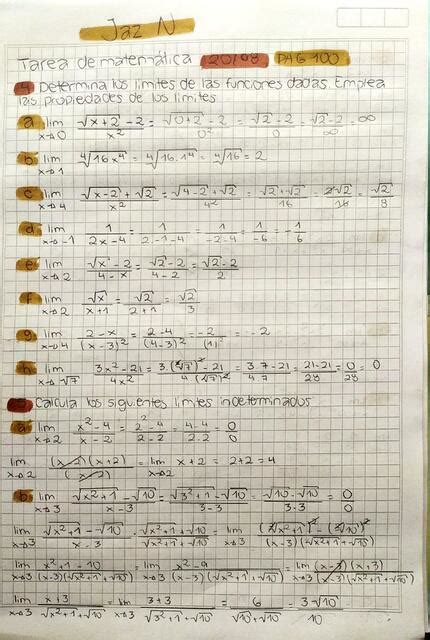 Jaz N
Tarea de matemática 20/08 PAG 100
4 Determina los limites de las funciones dadas. Emplea
las propiedades de los limites
a lim x→0 √x+2 - 2 / x² = √0+2 - 2 / 0² = √2 - 2 / 0 = √2 - 2 / ∞ = ∞
b lim x→1 ∜16x⁴ = ∜16.1⁴ = ∜16 = 2
c lim x→4 √x-2 + √2 / x² = √4-2 + √2 / 4² = √2+√2 / 16 = 2√2 / 16 = √2 / 8
d lim x→-1 1 / 2x-4 = 1 / 2.-1-4 = 1 / -2-4 = 1 / -6 = -1/6
e lim x→2 √x - 2 / 4-x = √2 - 2 / 4-2 = √2 - 2 / 2
f lim x→2 √x / x+1 = √2 / 2+1 = √2 / 3
g lim x→4 2-x / (x-3)² = 2-4 / (4-3)² = -2 / (1)² = -2
h lim x→√7 3x²-21 / 4x² = 3.(√7)²-21 / 4(√7)² = 3.7-21 / 4.7 = 21-21 / 28 = 0 / 28 = 0
5 Calcula los siguientes limites indeterminados
a lim x→2 x²-4 / x-2 = 2²-4 / 2-2 = 4-4 / 2-2 = 0 / 0
lim x→2 (x-2)(x+2) / (x-2) = lim x→2 x+2 = 2+2 = 4
b lim x→3 √x²+1 - √10 / x-3 = √3²+1 - √10 / 3-3 = √10 - √10 / 3-3 = 0 / 0
lim x→3 √x²+1 - √10 / x-3 . √x²+1 + √10 / √x²+1 + √10 = lim x→3 (√x²+1)² - (√10)² / (x-3)(√x²+1 + √10)
lim x→3 x²+1-10 / (x-3)(√x²+1 + √10) = lim x→3 x²-9 / (x-3)(√x²+1 + √10) = lim x→3 (x-3)(x+3) / (x-3)(√x²+1 + √10)
lim x→3 x+3 / √x²+1 + √10 = lim x→3 3+3 / √3²+1 + √10 = 6 / √10 + √10 = 3√10 / 10